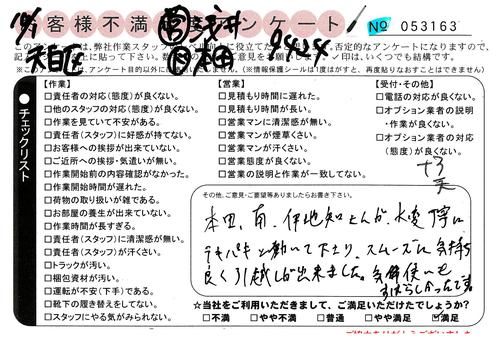 お客様不満足アンケート
No 053163
このアンケートは、弊社作業スタッフの
否定的なアンケートになりますので、
天白区
✓印は、いくつでも結構です。
※このアンケートは、アンケート目的以外には
(※情報保護シールは1度はがすと、再度貼りなおすことはできません)
●チェックリスト
【作業】
□責任者の対応(態度)が良くない。
□他のスタッフの対応(態度)が良くない。
□作業を見ていて不安がある。
□責任者(スタッフ)に好感が持てない。
□お客様への挨拶が出来ていない。
□ご近所への挨拶・気遣いが無い。
□作業開始前の内容確認がなかった。
□作業開始時間が遅れた。
□荷物の取り扱いが雑である。
□お部屋の養生が出来ていない。
□作業時間が長すぎる。
□責任者(スタッフ)に清潔感が無い。
□責任者(スタッフ)が汗くさい。
□トラックが汚い。
□梱包資材が汚い。
□運転が不安(下手)である。
□靴下の履き替えをしてない。
□スタッフにやる気がみられない。
【営業】
□見積もり時間が良くない。
□見積もり時間が長い。
□営業マンに清潔感が無い。
□営業マンが煙草くさい。
□営業マンが汗くさい。
□営業態度が良くない。
□営業の説明と作業が一致してない。
【受付・その他】
□電話の対応が良くない。
□オプション業者の説明
・作業が良くない。
□オプション業者の対応
(態度)が良くない。
その他、ご意見・ご要望等ありましたらお書き下さい。
本田、南、伊地知さんが、大変丁寧に
テキパキと動いて下さり、スムーズに気持ち
良く引越しが出来ました。気配使いも
すばらしかったです。
☆当社をご利用いただきまして、ご満足いただけたでしょうか?
□不満 □やや不満 □普通 □やや満足 ☑満足
ご協力ありがとうございました